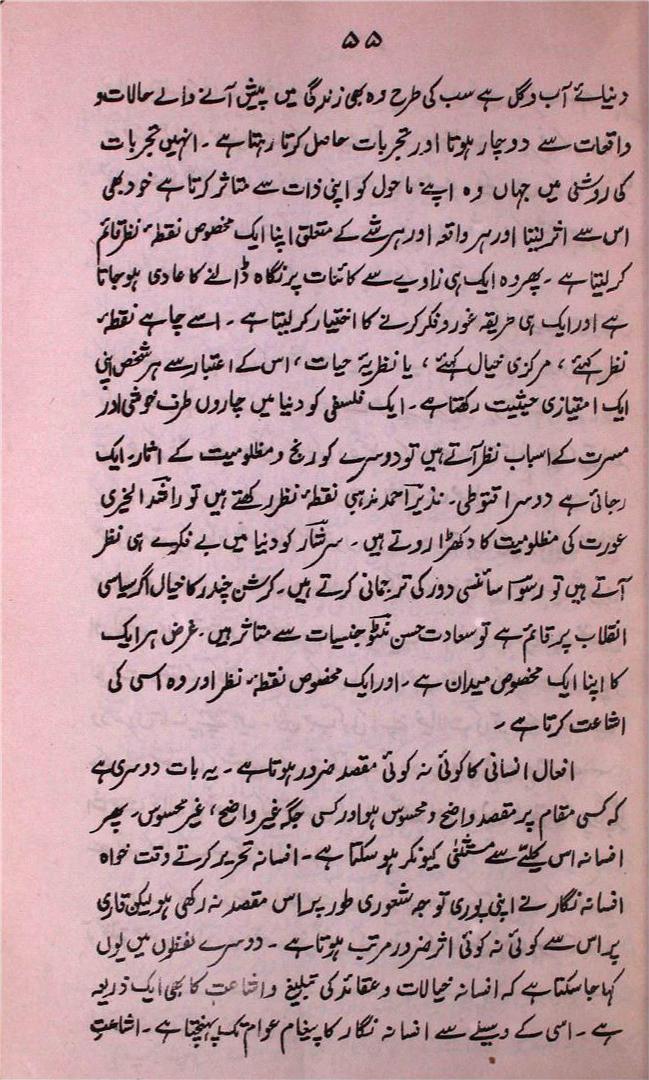 ۵۵
دنیائے آب و گل ہے سب کی طرح وہ بھی زندگی میں پیش آنے والے حالات و
واقعات سے دوچار ہوتا اور تجربات حاصل کرتا رہتا ہے ۔ انہیں تجربات
کی روشنی میں جہاں وہ اپنے ماحول کو اپنی ذات سے متاثر کرتا ہے خود بھی
اس سے اثر لیتا اور ہر واقعہ اور ہر شے کے متعلق اپنا ایک مخصوص نقطۂ نظر قائم
کر لیتا ہے ۔ پھر وہ ایک ہی زاویے سے کائنات پر نگاہ ڈالنے کا عادی ہو جاتا
ہے اور ایک ہی طریقہ غور و فکر کرنے کا اختیار کر لیتا ہے ۔ اسے چاہے نقطۂ
نظر کہئے ، مرکزی خیال کہئے ، یا نظریۂ حیات ، اس کے اعتبار سے ہر شخص اپنی
ایک امتیازی حیثیت رکھتا ہے ۔ ایک فلسفی کو دنیا میں چاروں طرف خوشی اور
مسرت کے اسباب نظر آتے ہیں تو دوسرے کو رنج و مظلومیت کے آثار ۔ ایک
رجائی ہے دوسرا قنوطی ۔ نذیر احمد مذہبی نقطۂ نظر رکھتے ہیں تو راشد الخیری
عورت کی مظلومیت کا دکھڑا روتے ہیں ۔ سرشار کو دنیا میں بے فکرے ہی نظر
آتے ہیں تو رسوا سائنسی دور کی ترجمانی کرتے ہیں ۔ کرشن چندر کا خیال اگر سیاسی
انقلاب پر قائم ہے تو سعادت حسن منٹو جنسیات سے متاثر ہیں ۔ غرض ہر ایک
کا اپنا ایک مخصوص میدان ہے ۔ اور ایک مخصوص نقطۂ نظر اور وہ اسی کی
اشاعت کرتا ہے ۔
افعال انسانی کا کوئی نہ کوئی مقصد ضرور ہوتا ہے ۔ یہ بات دوسری ہے
کہ کسی مقام پر مقصد واضح و محسوس ہو اور کسی جگہ غیر واضح ، غیر محسوس ۔ پھر
افسانہ اس کلیے سے مستثنیٰ کیونکر ہو سکتا ہے ۔ افسانہ تحریر کرتے وقت خواہ
افسانہ نگار نے اپنی پوری توجہ شعوری طور پر اس مقصد نہ رکھی ہو لیکن قاری
پر اس سے کوئی نہ کوئی اثر ضرور مرتب ہوتا ہے ۔ دوسرے لفظوں میں یوں
کہا جا سکتا ہے کہ افسانہ خیالات و عقائد کی تبلیغ و اشاعت کا بھی ایک ذریعہ
ہے ۔ اسی کے وسیلے سے افسانہ نگار کا پیغام عوام تک پہنچتا ہے ۔ اشاعتِ